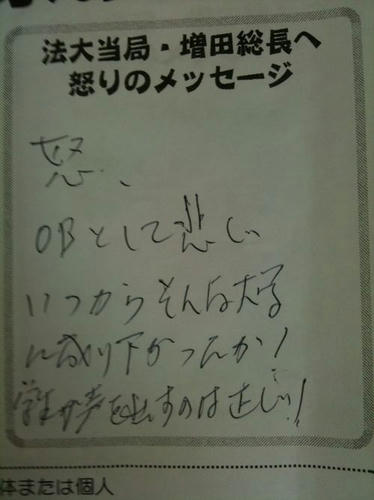 法大当局・増田総長へ
怒りのメッセージ
怒、
OBとして悲しい
いつからそんな大学
に成り下がったんか!
学生が声を出すのは正しい!
体または個人